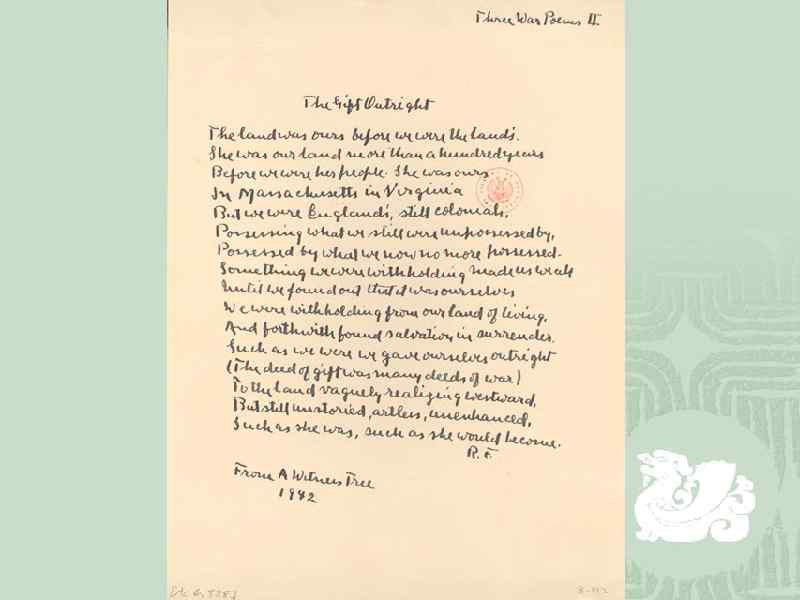 Three War Poems II.
The Gift Outright
The land was ours before we were the land's.
She was our land more than a hundred years
Before we were her people. She was ours
In Massachusetts in Virginia
But we were England's, still colonials,
Possessing what we still were unpossessed by,
Possessed by what we now no more possessed.
Something we were withholding made us weak
Until we found out that it was ourselves
We were withholding from our land of living,
And forthwith found salvation in surrender.
Such as we were we gave ourselves outright
(The deed of gift was many deeds of war)
To the land vaguely realizing westward,
But still unstoried, artless, unenhanced,
Such as she was, such as she would become.
R. F.
From A Witness Tree
1942